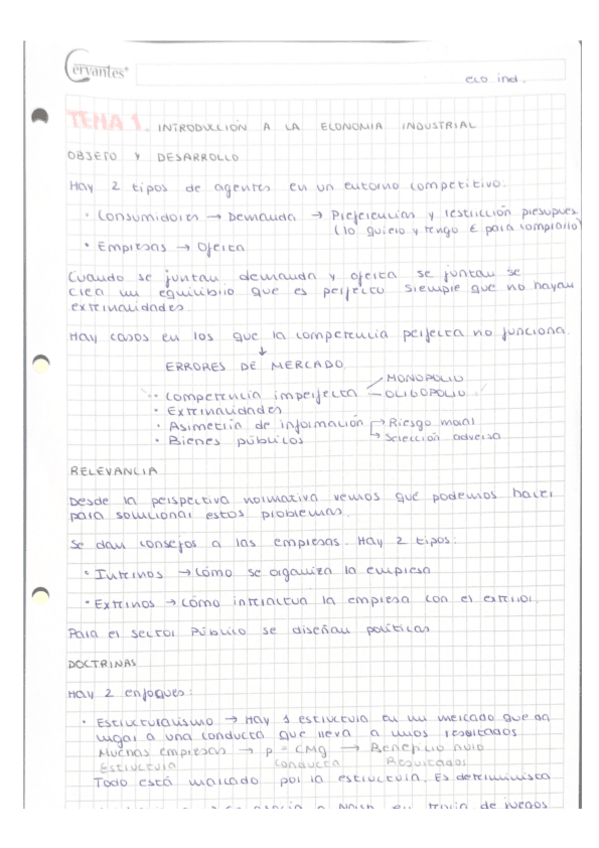 Cervantes
eco ind.
TEMA 1. INTRODUCCIÓN A LA ECONOMIA INDUSTRIAL
OBJETO Y DESARROLLO
Hay 2 tipos de agentes en un entorno competitivo.
· Consumidores → Demanda → Preferencias y restricción presupues
(lo quiero y tengo € para comprarlo)
· Empresas → Oferta
Cuando se juntan demanda y oferta se juntan se
crea un equilibrio que es perfecto siempre que no hayan
externalidades.
Hay casos en los que la competencia perfecta no funciona.
↓
ERRORES DE MERCADO.
· Competencia imperfecta — MONOPOLIO
— OLIGOPOLIO
· Externalidades
· Asimetría de información → Riesgo moral
→ Selección adversa
· Bienes públicos
RELEVANCIA
Desde la perspectiva normativa vemos que podemos hacer
para solucionar estos problemas.
Se dan consejos a las empresas. Hay 2 tipos:
· Internos → Cómo se organiza la empresa
· Externos → Cómo interactua la empresa con el exterior.
Para el Sector Público se diseñan políticas
DOCTRINAS
Hay 2 enfoques:
· Estructuralismo → Hay 1 estructura en un mercado que da
lugar a una conducta que lleva a unos resultados
Muchas empresas → p = CMg → Beneficio nulo
Estructura Conducta Resultados
Todo está marcado por la estructura. Es determinista
a Nash en teoría de juegos